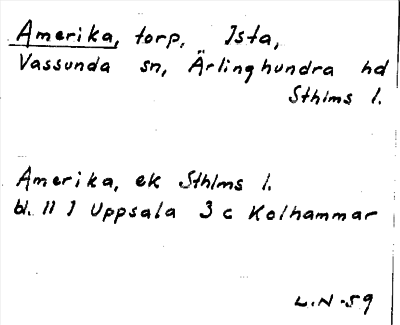 Amerika, torp, Ista,
Vassunda sn, Ärlinghundra hd
Sthlms l.
Amerika, ek Sthlms l.
bl. 11 I Uppsala 3 c Kolhammar
L.N -59